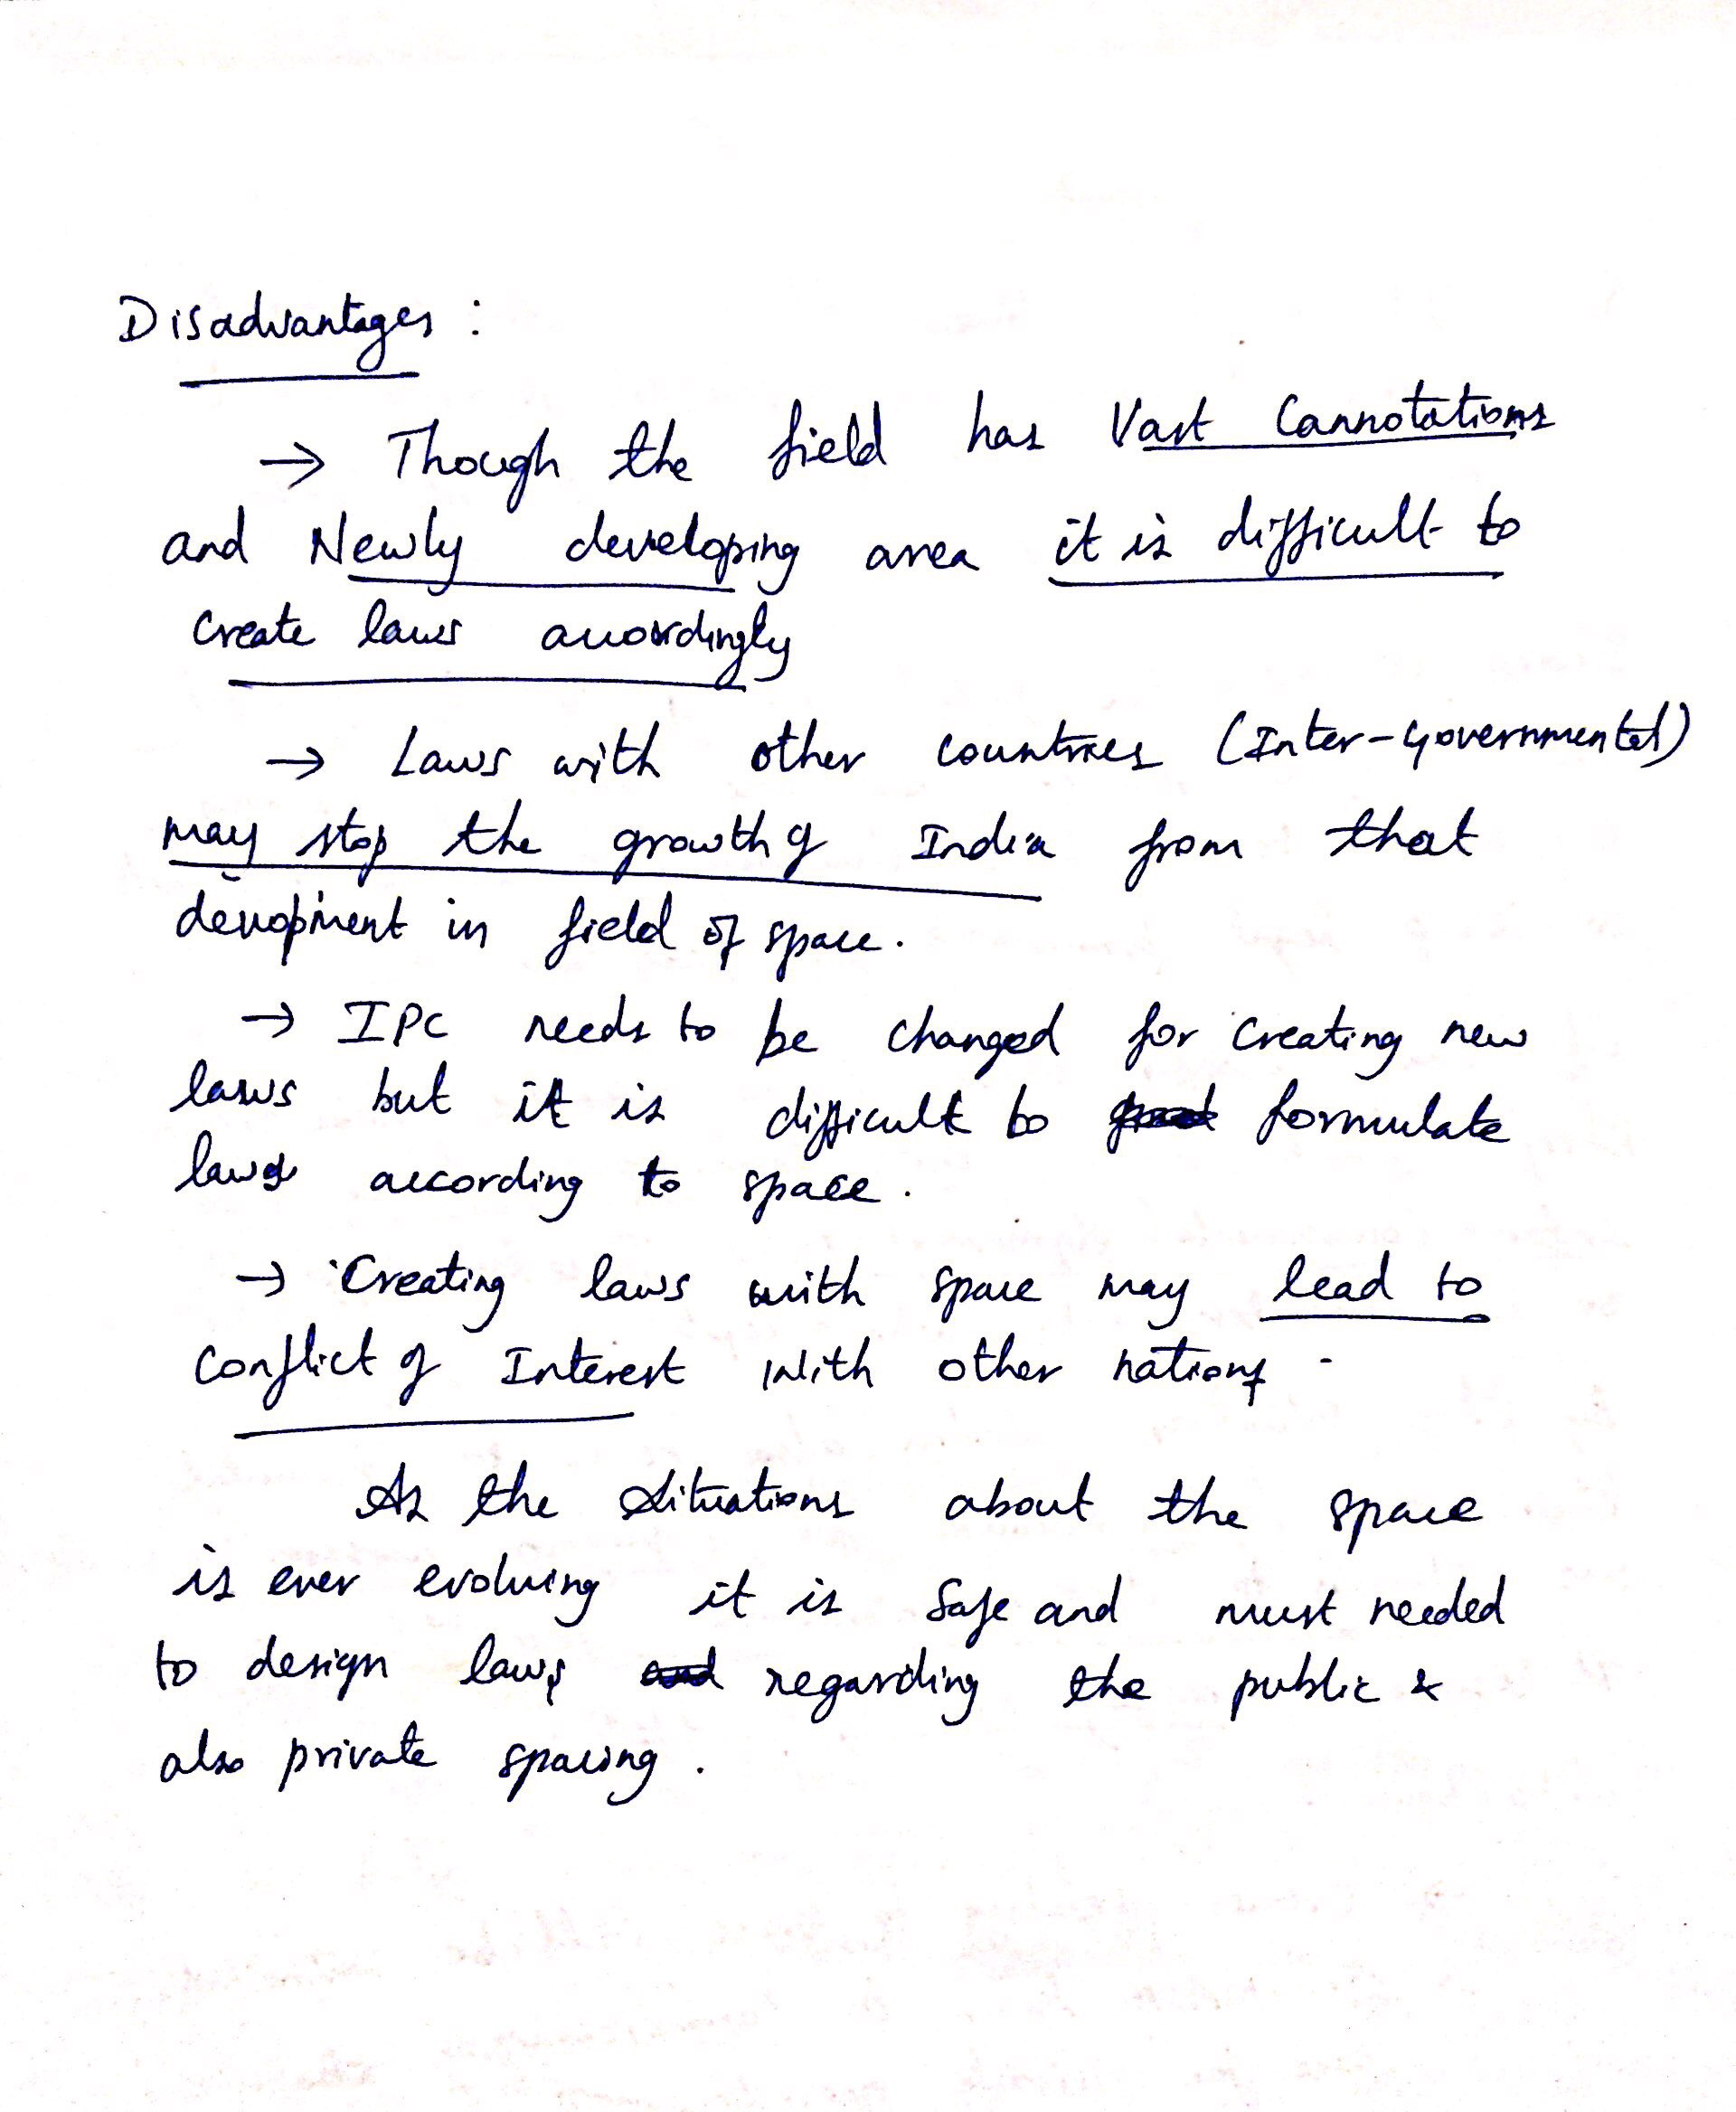 Disadvantages :
→ Though the field has Vast Cannotations
and Newly developing area it is difficult to
create laws accordingly
→ Laws with other countries (Inter-Governmental)
may stop the growth of India from that
devopment in field of space.
→ IPC needs to be changed for creating new
laws but it is difficult to formulate
laws according to space.
→ Creating laws with space may lead to
conflict of Interest with other nations.
As the situations about the space
is ever evolving it is safe and must needed
to design laws and regarding the public &
also private spacing.